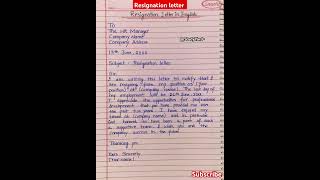 Resignation letter
Resignation Letter In English
To
The HR Manager
Company Name
Company Address
13th June,
Subject - Resignation letter
Sir,
I am writing this letter to notify that I
am resigning from my position as (your
position) at (company name). The last day of
my employment will be 26th June
I appreciate the opportunities for professional
development that you have provided me over
the past two years. I have enjoyed my
tenure at (company name) and in particular
feel honored to have been a part of such
a supportive team. I wish you and the
company success in the future
Thanking you
Yours Sincerely
(Your name)
Subscribe